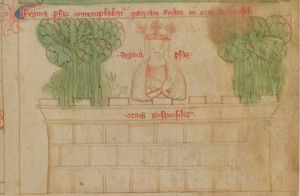 Regina psar contemplabatʳ patriam suam in orto suspensili
Regina psar
ortus suspensilis